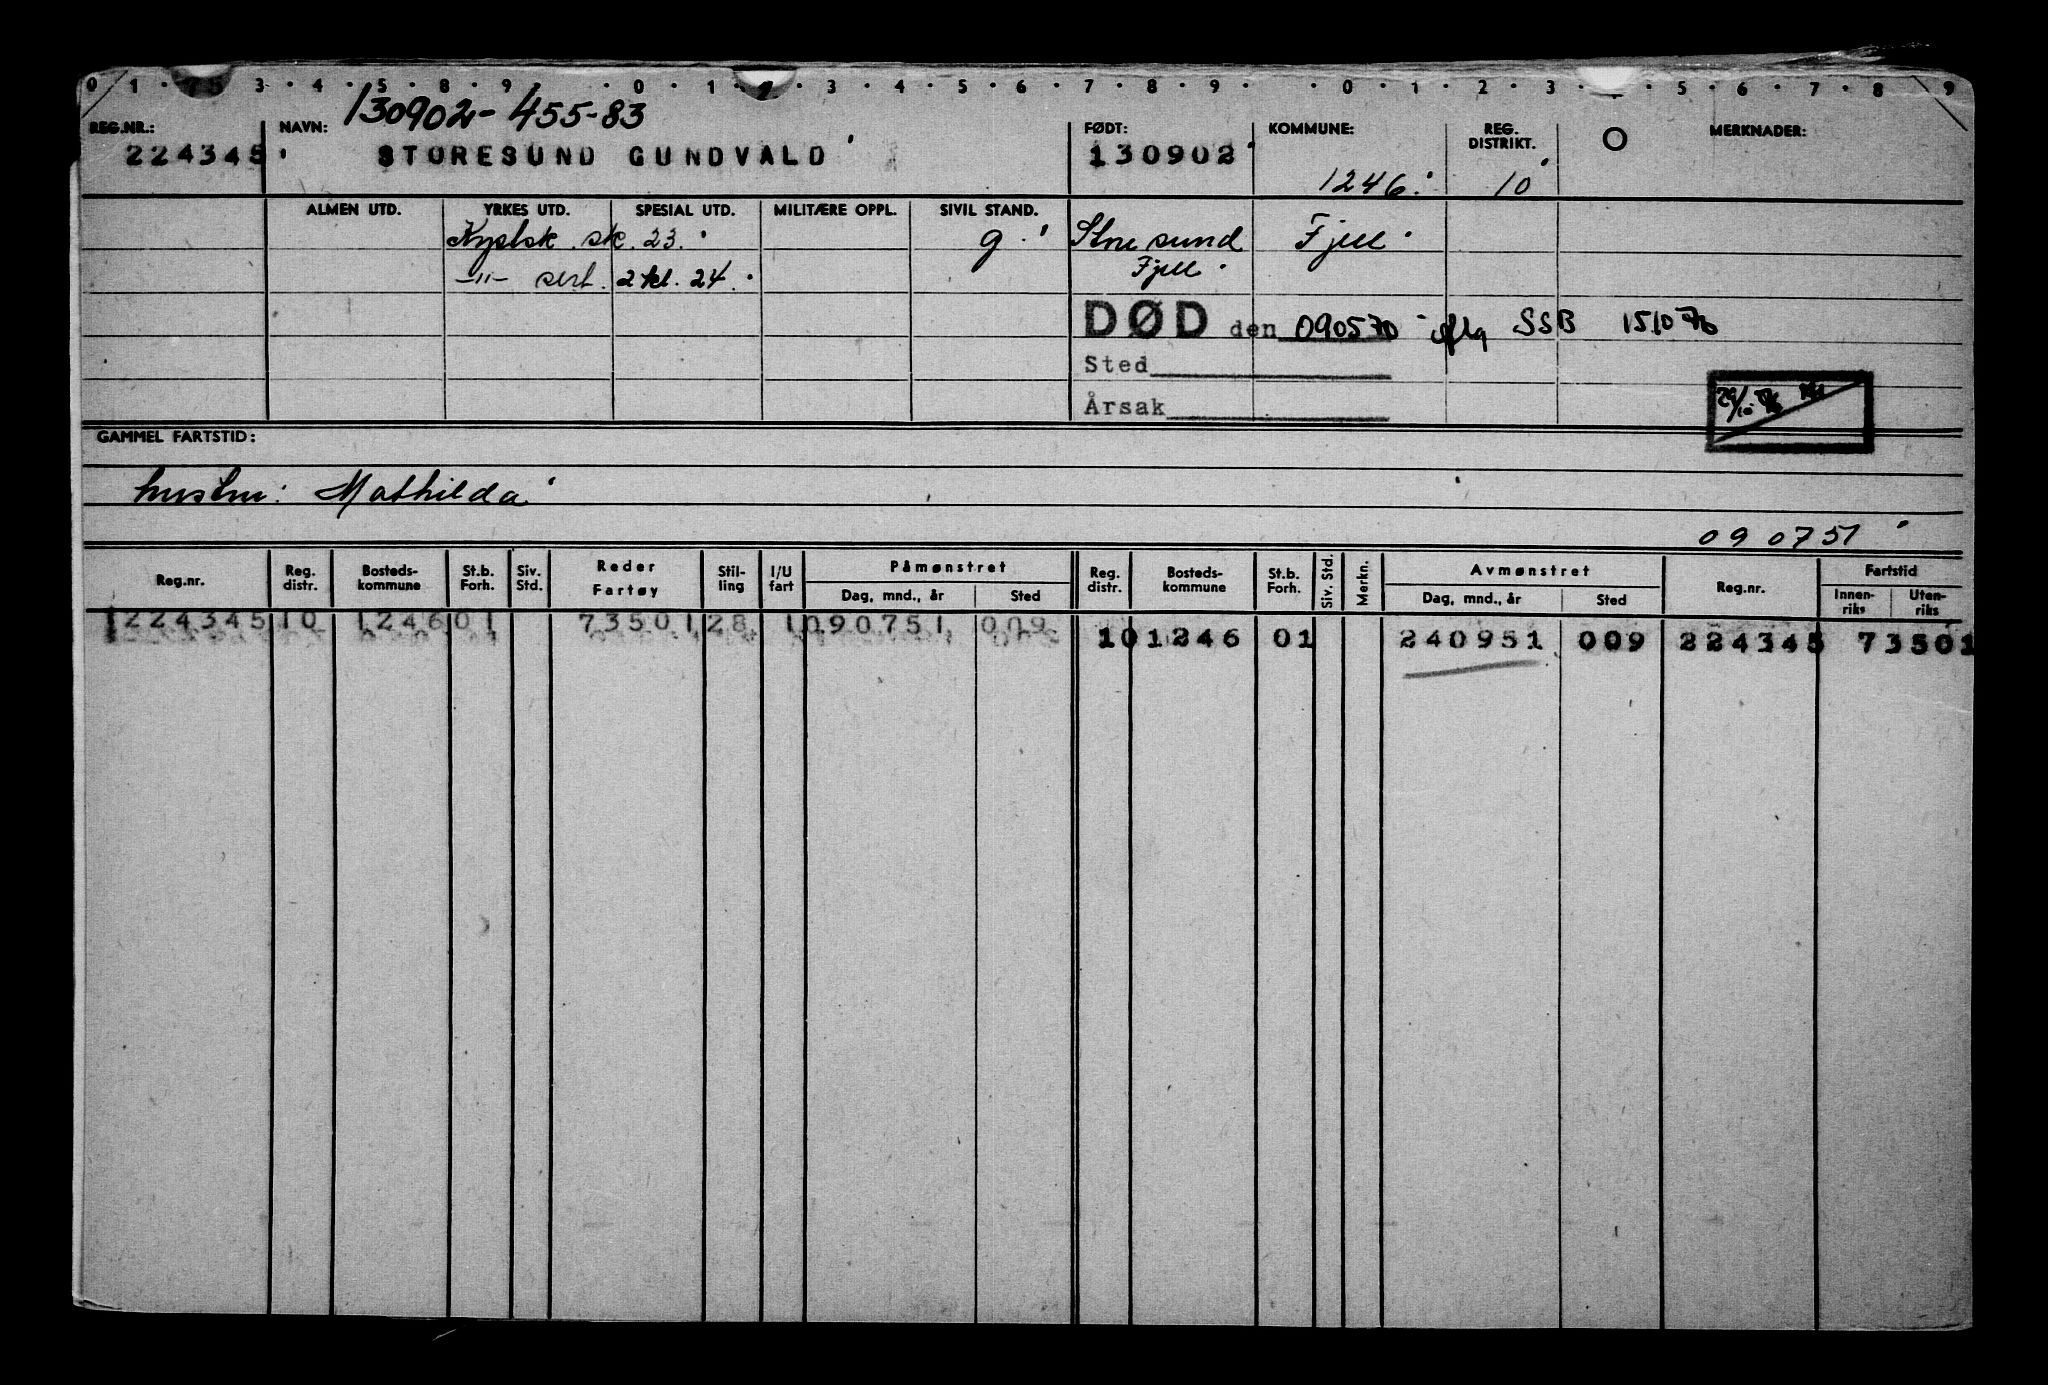 0 1 · 5 3 · 4 · 5 · 8 · 9 · · 0 · 1 · 2 · 3 · 4 · 5 · 6 · 7 · 8 · 9 · · 0 · 1 · 2 · 3 · · 5 · 6 · 7 · 8 · 9
130902-455-83
REG.NR.: NAVN: FØDT: KOMMUNE: REG. DISTRIKT. O MERKNADER:
224345 STORESUND GUNDVALD 130902
1246. 10
ALMEN UTD. YRKES UTD. SPESIAL UTD. MILITÆRE OPPL. SIVIL STAND.
Kystsk. sk. 23. g. Storesund Fjell
-"- sert. 2 kl. 24. Fjell.
DØD den 090570 SSB 151076
Sted
Årsak
GAMMEL FARTSTID:
hustru: Mathilda
09 07 51
Reg.nr. Reg. distr. Bosteds-kommune St.b. Forh. Siv. Std. Reder Fartøy Stil-ling I/U fart Påmønstret Dag, mnd., år Sted Reg. distr. Bosteds-kommune St.b. Forh. Siv. Std. Merkn. Avmønstret Dag, mnd., år Sted Reg.nr. Fartstid Innen-riks Uten-riks
224345 10 1246 01 73501 28 1 090751 009
10 1246 01 240951 009 224345 73501